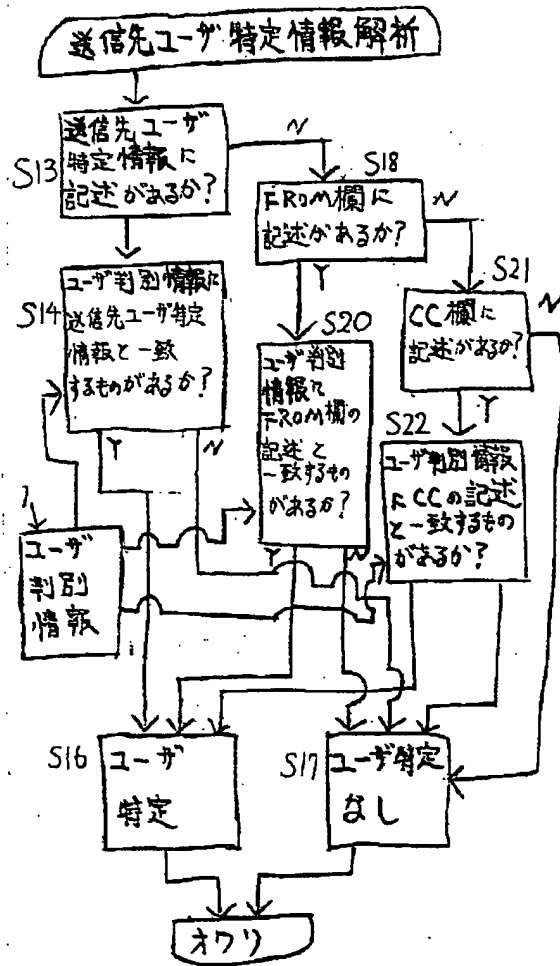 送信先ユーザ特定情報解析
S13
送信先ユーザ
特定情報に
記述があるか?
N
S18
FROM欄に
記述があるか?
N
Y
S21
CC欄に
記述があるか?
N
Y
S14
ユーザ判別情報に
送信先ユーザ特定
情報と一致
するものがあるか?
Y
N
S20
ユーザ判別
情報に
FROM欄の
記述と
一致するもの
があるか?
Y
N
S22
ユーザ判別情報
にCCの記述
と一致するもの
があるか?
7
ユーザ
判別
情報
S16
ユーザ
特定
S17
ユーザ特定
なし
オワリ